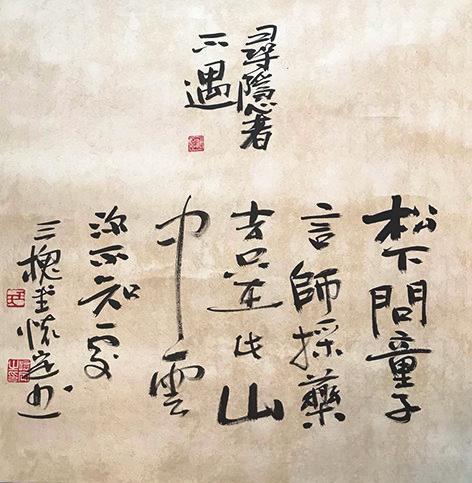 尋隱者
不遇
松下問童子
言師採藥
去只在此山
中雲
深不知處
三槐堂懷